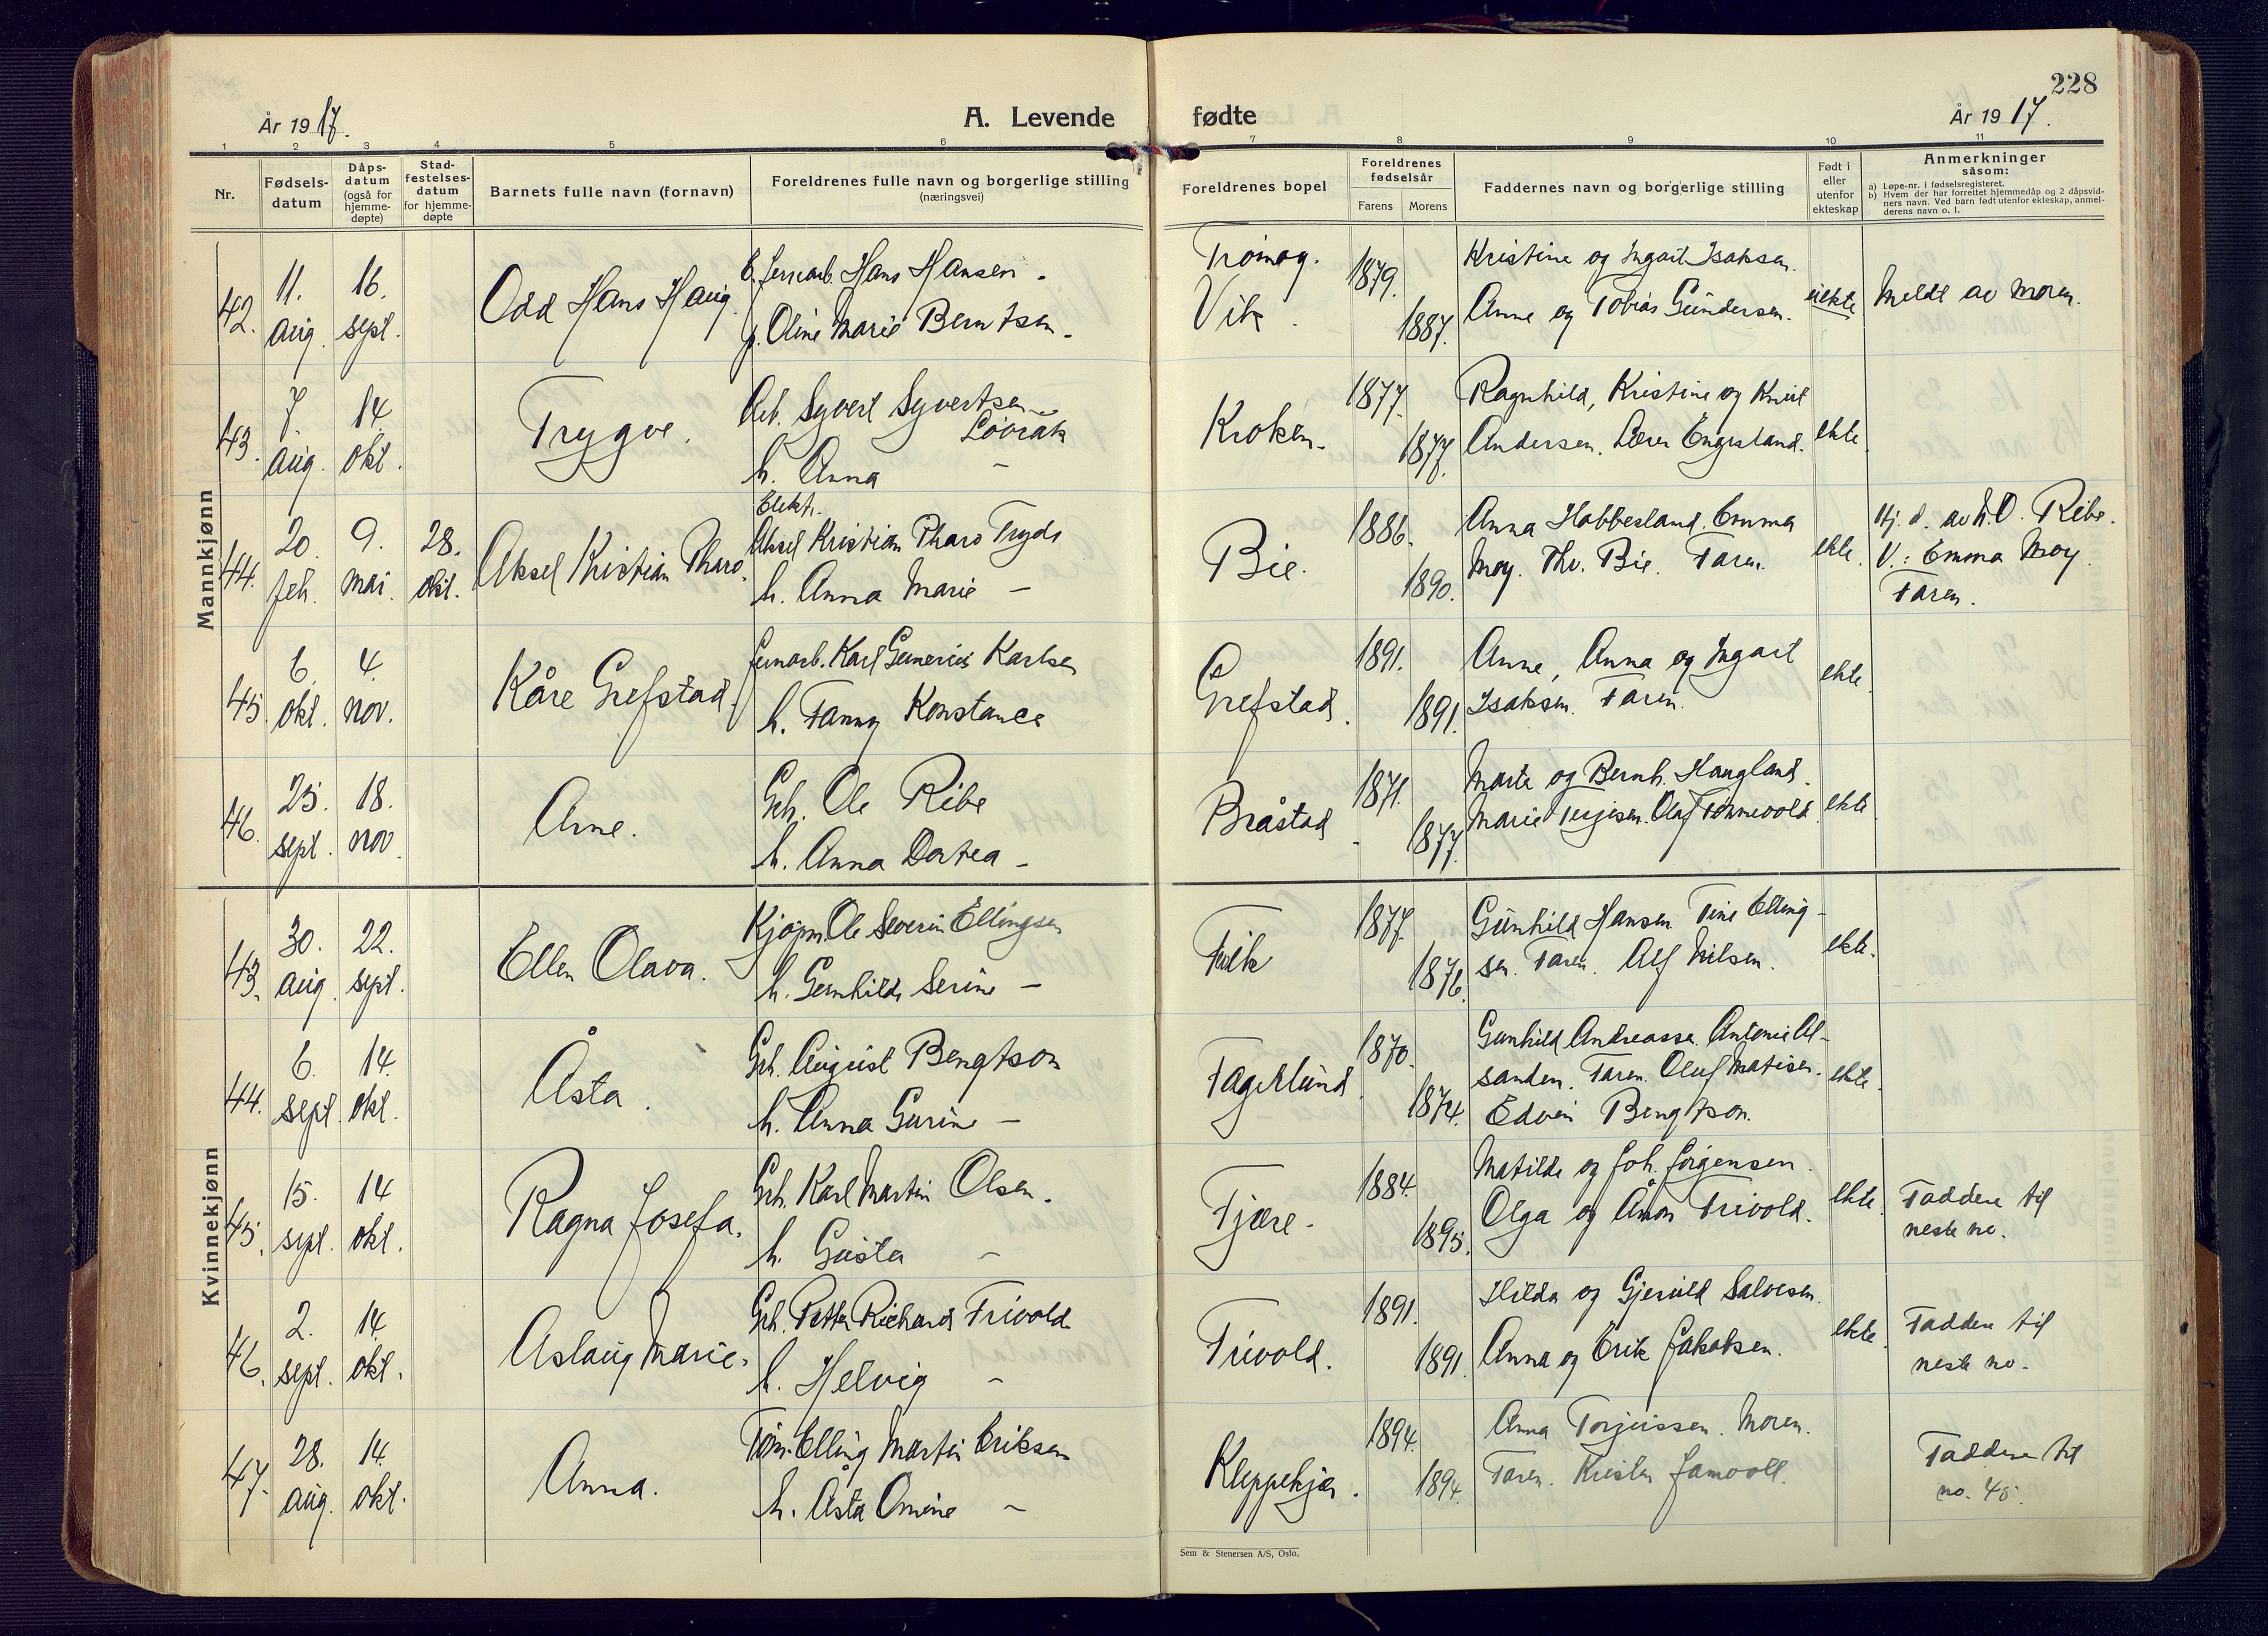 228
År 1917.
A. Levende
fødte
År 1917.
1 2 3 4 5 6 7 8 9 10 11
Nr.
Fødsels-
datum
Dåps-
datum
(også for
hjemme-
døpte)
Stad-
festelses-
datum
for hjemme-
døpte
Barnets fulle navn (fornavn)
Foreldrenes fulle navn og borgerlige stilling
(næringsvei)
Foreldrenes bopel
Foreldrenes
fødselsår
Farens
Morens
Faddernes navn og borgerlige stilling
Født i
eller
utenfor
ekteskap
Anmerkninger
såsom:
a) Løpe-nr. i fødselsregisteret.
b) Hvem der har forrettet hjemmedåp og 2 dåpsvid-
ners navn. Ved barn født utenfor ekteskap, anmel-
derens navn o. l.
Mannkjønn
42.
11.
aug.
16.
sept.
Odd Hans Haug.
Hans Hansen.
p. Oline Marie Berntsen.
Tromøy.
Vik.
1879.
1887.
Kristine og Ingart Isaksen.
Anne og Tobias Gundersen.
uekte
Meldt av moren.
43.
7.
aug.
14.
okt.
Trygve.
Arb. Syvert Syvertsen
Løvrak
h. Anna —
Kroken.
1877.
1877.
Ragnhild, Kristine og Knut
Andersen. Lærer Engesland.
ekte.
44.
20.
feb.
9.
mai.
28.
okt.
Aksel Kristian Pharo.
Elektr.
Aksel Kristian Pharo Fryds
h. Anna Marie —
Bie.
1886.
1890.
Anna Habbesland. Emma
Moy. Thv. Bie. Faren.
ekte.
Hj. d. av L.O. Ribe.
V.: Emma Moy.
Faren.
45.
6.
okt.
4.
nov.
Kåre Grefstad.
Jernarb. Karl Karlsen
h. Fanny Konstance
Grefstad.
1891.
1891.
Anne, Anna og Ingart
Isaksen. Faren.
ekte.
46.
25.
sept.
18.
nov.
Arne.
Gh. Ole Ribe
h. Anna Dortea —
Bråstad.
1871.
1877.
Marte og Bernh. Haugland.
Marie Terjesen. Olaf Tønnevold.
ekte.
Kvinnekjønn
43.
30.
aug.
22.
sept.
Ellen Olava.
Kjøpm. Ole Severin Ellingsen
h. Gunhild Serine —
Fevik
1877.
1876.
Gunhild Hansen. Tine Elling-
sen. Faren. Alf Nilsen.
ekte.
44.
6.
sept.
14.
okt.
Åsta.
Gh. August Bengtson
h. Anna Gurine —
Fagerlund.
1870.
1874.
Gunhild Andreassen. Antonie Al-
sanden. Faren. Oluf Matisen.
Edvin Bengtson.
ekte.
45.
15.
sept.
14
okt.
Ragna Josefa.
Gh. Karl Martin Olsen.
h. Gusta —
Fjære.
1884.
1895.
Matilde og Joh. Jørgensen.
Olga og Åmon Trivold.
ekte.
Faddere til
neste no.
46.
2.
sept.
14.
okt.
Aslaug Marie.
Gh. Petter Richard Trivold
h. Helvig —
Trivold.
1891.
1891.
Hilda og Gjerulf Salvesen.
Anna og Erik Jakobsen.
ekte.
Faddere til
neste no.
47.
28.
aug.
14.
okt.
Anna.
Tøm. Elling Martin Eriksen
h. Åsta Omine —
Kleppekjær.
1894.
1894.
Anna Torjussen. Moren.
Faren. Kristen Jamvoll.
Faddere til
no. 45.
Sem & Stenersen A/S, Oslo.